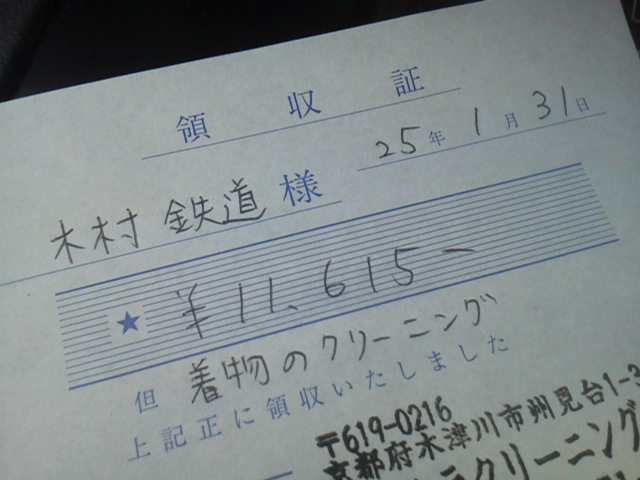 領収証
25年1月31日
木村 鉄道 様
★ ¥11,615-
但 着物のクリーニング
上記正に領収いたしました
〒619-0216
京都府木津川市州見台1-3
クリーニング